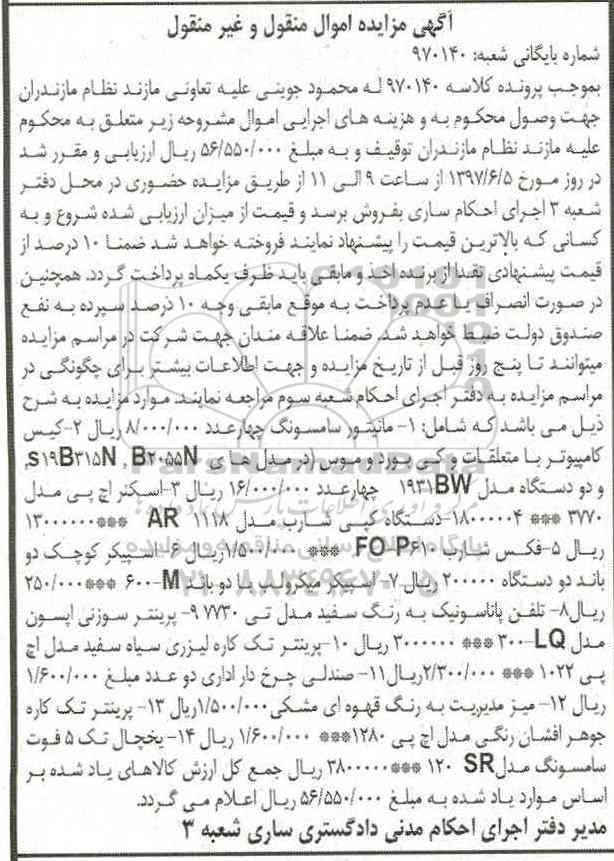 آگهی مزایده اموال منقول و غیر منقول
شماره بایگانی شعبه: ۹۷۰۱۴۰
بموجب پرونده کلاسه ۹۷۰۱۴۰ له محمود جوینی علیه تعاونی مازند نظام مازندران
جهت وصول محکوم به و هزینه های اجرایی اموال مشروحه زیر متعلق به محکوم
علیه مازند نظام مازندران توقیف و به مبلغ ۵۶/۵۵۰/۰۰۰ ریال ارزیابی و مقرر شد
در روز مورخ ۱۳۹۷/۶/۵ از ساعت ۹ الی ۱۱ از طریق مزایده حضوری در محل دفتر
شعبه ۳ اجرای احکام ساری بفروش برسد و قیمت از میزان ارزیابی شده شروع و به
کسانی که بالاترین قیمت را پیشنهاد نمایند فروخته خواهد شد ضمنا ۱۰ درصد از
قیمت پیشنهادی نقدا از برنده اخذ و مابقی باید ظرف یکماه پرداخت گردد. همچنین
در صورت انصراف یا عدم پرداخت به موقع مابقی وجه ۱۰ درصد سپرده به نفع
صندوق دولت ضبط خواهد شد. ضمنا علاقه مندان جهت شرکت در مراسم مزایده
میتوانند تا پنج روز قبل از تاریخ مزایده و جهت اطلاعات بیشتر برای چگونگی در
مراسم مزایده به دفتر اجرای احکام شعبه سوم مراجعه نمایند. موارد مزایده به شرح
ذیل می باشد که شامل: ۱- مانیتور سامسونگ چهارعدد ۸/۰۰۰/۰۰۰ ریال ۲-کیس
کامپیوتر با متعلقات و کی بورد و موس (در مدل ها ی S۱۹B۳۱۵N , B۲۰۵۵N,
و دو دستگاه مدل ۱۹۳۱BW چهارعدد ۱۶/۰۰۰/۰۰۰ ریال ۳-اسکنر اچ پی مدل
۳۷۷۰ *** ۱۸۰۰۰۰۰۴-دستگاه کپی شارپ مدل AR ۱۱۱۸ ***۱۳۰۰۰۰۰۰
ریال ۵-فکس شارپ FO-P۶۱۰ *** ۱/۵۰۰/۰۰۰ریال ۶-اسپیکر کوچک دو
باند دو دستگاه ۲۰۰۰۰۰ ریال ۷-اسپیکر میکرولب با دو باند M-۶۰۰ ***۲۵۰/۰۰۰
ریال۸- تلفن پاناسونیک به رنگ سفید مدل تی ۷۷۳۰ ۹- پرینتر سوزنی اپسون
مدل LQ-۳۰۰ *** ۳۰۰۰۰۰۰ ریال ۱۰-پرینتر تک کاره لیزری سیاه سفید مدل اچ
پی ۱۰۲۲ *** ۲/۳۰۰/۰۰۰ریال۱۱- صندلی چرخ دار اداری دو عدد مبلغ ۱/۶۰۰/۰۰۰
ریال ۱۲-میز مدیریت به رنگ قهوه ای مشکی۱/۵۰۰/۰۰۰ریال ۱۳- پرینتر تک کاره
جوهر افشان رنگی مدل اچ پی ۱۲۸۰*** ۱/۶۰۰/۰۰۰ ریال ۱۴-یخچال تک ۵ فوت
سامسونگ مدلSR ۱۲۰ ***۳۸۰۰۰۰۰ ریال جمع کل ارزش کالاهای یاد شده بر
اساس موارد یاد شده به مبلغ ۵۶/۵۵۰/۰۰۰ ریال اعلام می گردد.
مدیر دفتر اجرای احکام مدنی دادگستری ساری شعبه ۳